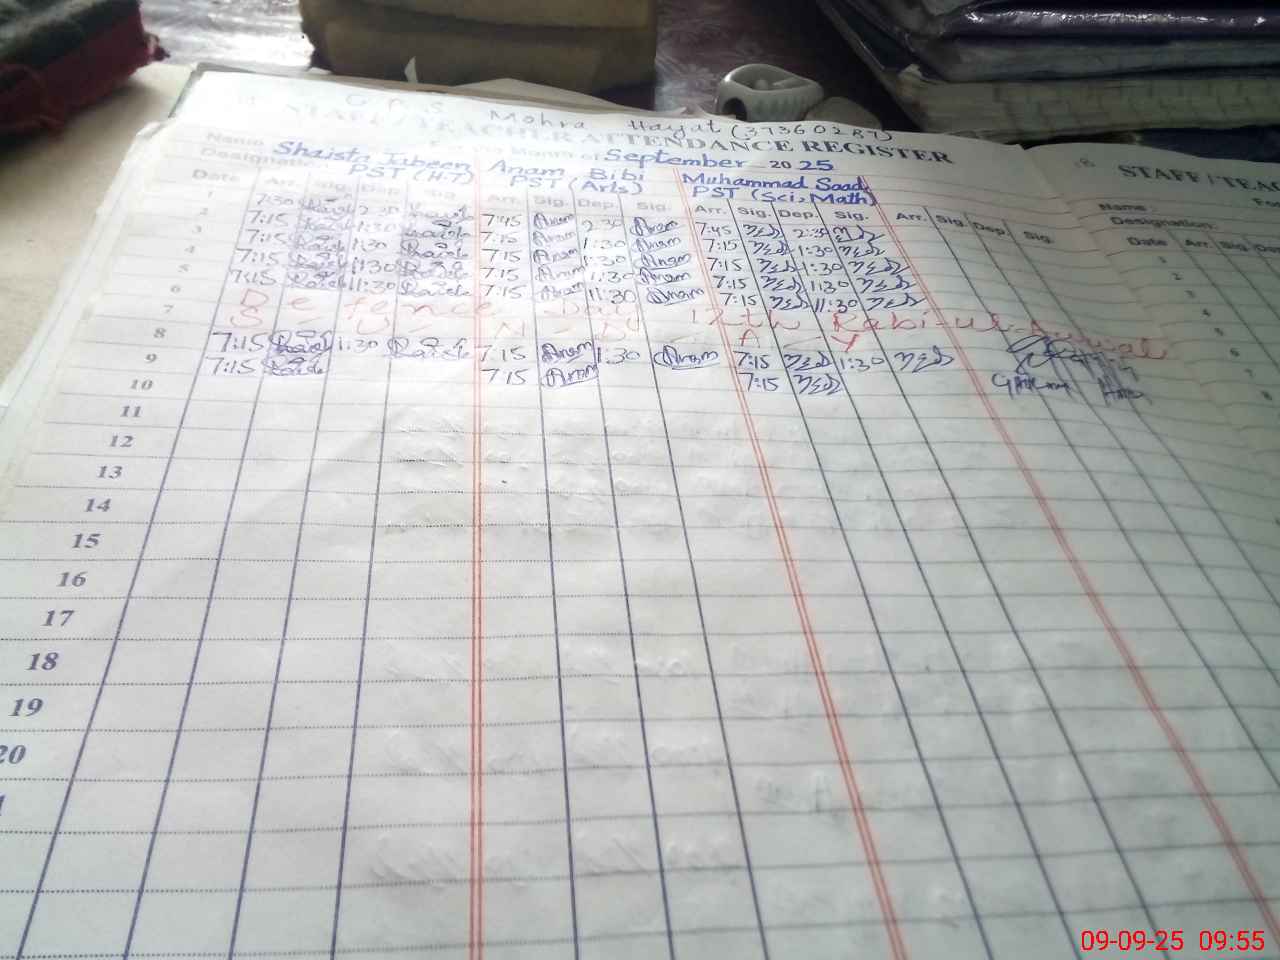 G.P.S. Mohra Hayat (37360287)
STAFF / TEACHER ATTENDANCE REGISTER
Name Shaista Jabeen Anam Bibi Muhammad Saad
Month of September 2025
Designation PST (H.T) PST (Arts) PST (Sci, Math)
Date Arr. Sig. Dep. Sig. Arr. Sig. Dep. Sig. Arr. Sig. Dep. Sig. Arr. Sig. Dep. Sig.
1 7:30 2:30 7:45 Anam 2:30 Anam 7:45 2:30
2 7:15 1:30 7:15 Anam 1:30 Anam 7:15 1:30
3 7:15 1:30 7:15 Anam 1:30 Anam 7:15 1:30
4 7:15 1:30 7:15 Anam 1:30 Anam 7:15 1:30
5 7:15 11:30 7:15 Anam 11:30 Anam 7:15 11:30
6 Defence Day 12th Rabi-ul-Awwal
7 S U N D A Y
8 7:15 1:30 7:15 Anam 1:30 Anam 7:15 1:30
9 7:15 7:15 Anam 7:15
10
11
12
13
14
15
16
17
18
19
20
STAFF / TEA
Name
Designation:
Date Arr. Sig.
1
2
3
4
5
6
7
8
09-09-25 09:55